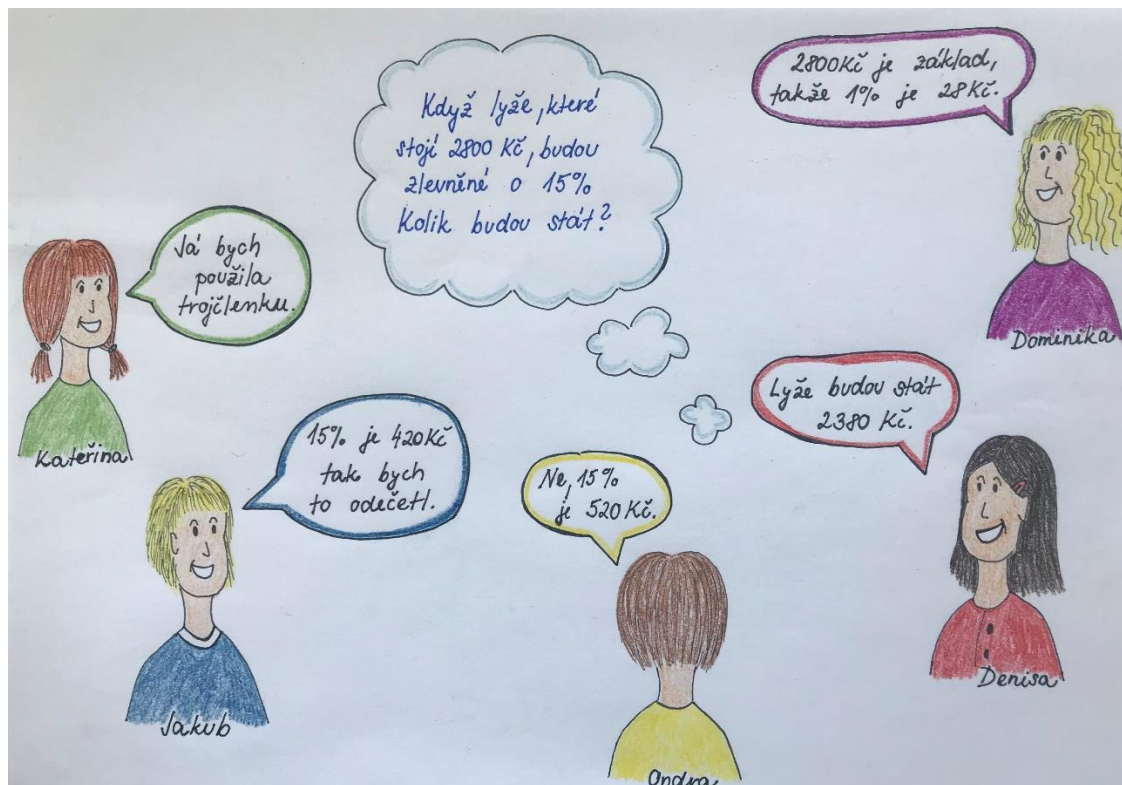 Když lyže, které
stojí 2800 Kč, budou
zlevněné o 15%
Kolik budou stát?
2800Kč je základ,
takže 1% je 28Kč.
Dominika
Já bych
použila
trojčlenku.
Kateřina
Lyže budou stát
2380 Kč.
Denisa
15% je 420Kč
tak bych
to odečetl.
Jakub
Ne, 15%
je 520Kč.
Ondra